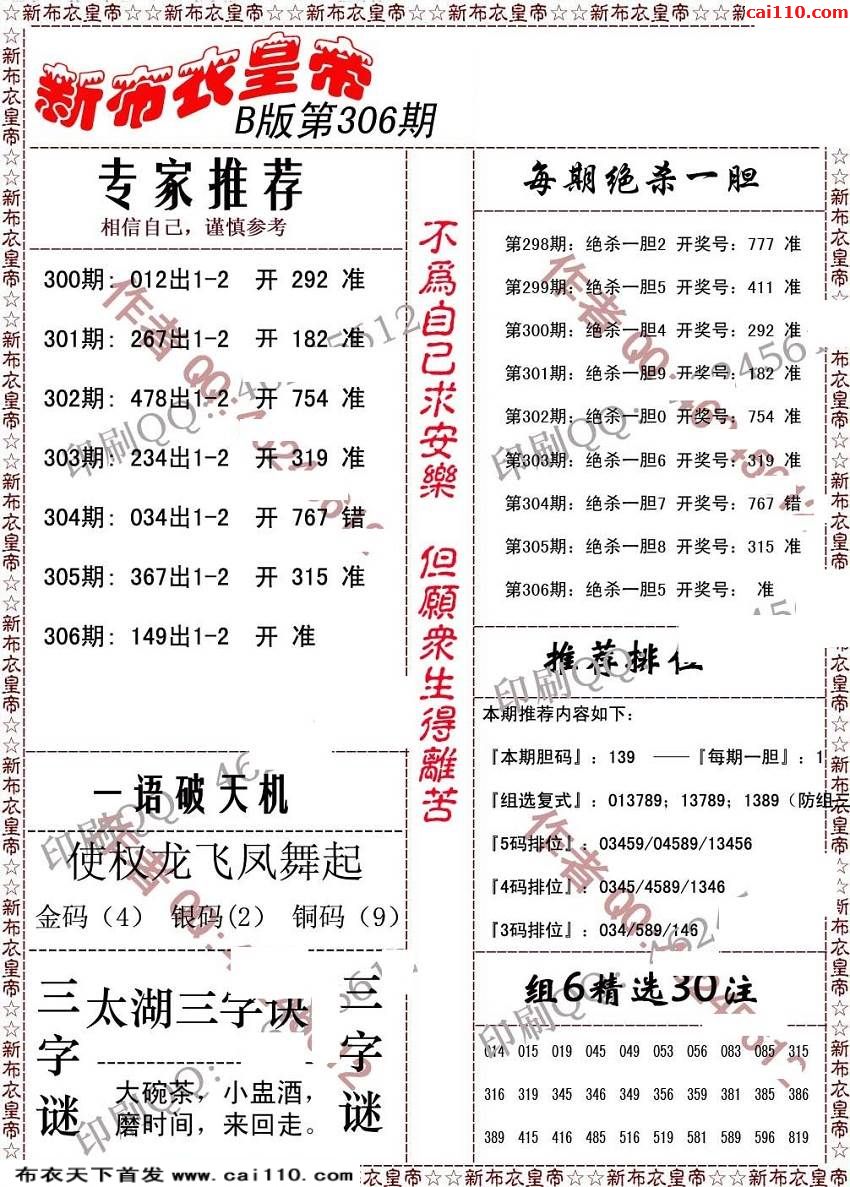 ☆新布衣皇帝☆☆新布衣皇帝☆☆新布衣皇帝☆☆新布衣皇帝☆☆新布衣皇帝☆☆新
cai110.com
新布衣皇帝
B版第306期
专家推荐
相信自己，谨慎参考
300期: 012出1-2 开 292 准
301期: 267出1-2 开 182 准
302期: 478出1-2 开 754 准
303期: 234出1-2 开 319 准
304期: 034出1-2 开 767 错
305期: 367出1-2 开 315 准
306期: 149出1-2 开 准
一语破天机
使权龙飞凤舞起
金码（4） 银码(2） 铜码（9）
三字谜
太湖三字诀
大碗茶，小盅酒，
磨时间，来回走。
三字谜
不爲自己求安樂 但願衆生得離苦
每期绝杀一胆
第298期: 绝杀一胆2 开奖号: 777 准
第299期: 绝杀一胆5 开奖号: 411 准
第300期: 绝杀一胆4 开奖号: 292 准
第301期: 绝杀一胆9 开奖号: 182 准
第302期: 绝杀一胆0 开奖号: 754 准
第303期: 绝杀一胆6 开奖号: 319 准
第304期: 绝杀一胆7 开奖号: 767 错
第305期: 绝杀一胆8 开奖号: 315 准
第306期: 绝杀一胆5 开奖号: 准
推荐排位
本期推荐内容如下:
『本期胆码』: 139 ——『每期一胆』: 1
『组选复式』: 013789; 13789; 1389（防组三
『5码排位』: 03459/04589/13456
『4码排位』: 0345/4589/1346
『3码排位』: 034/589/146
组6精选30注
014 015 019 045 049 053 056 083 085 315
316 319 345 346 349 356 359 381 385 386
389 415 416 485 516 519 581 589 596 819
布衣天下首发 www.cai110.com
☆新布衣皇帝☆☆新布衣皇帝☆☆新布衣皇帝☆☆新布衣皇帝☆